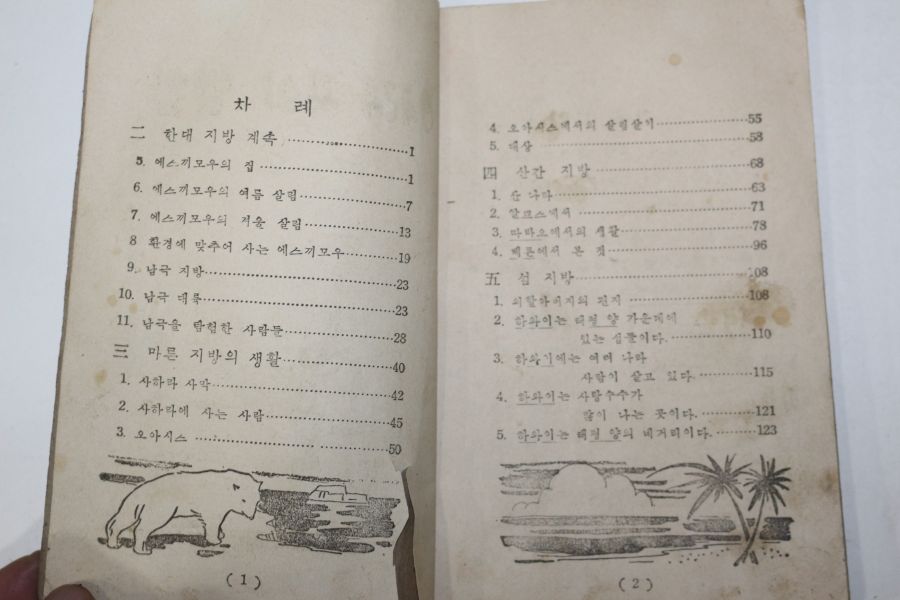 차 례
二 한대 지방 계속 1
5. 에스끼모우의 집 1
6. 에스끼모우의 여름 살림 7
7. 에스끼모우의 겨울 살림 13
8 환경에 맞추어 사는 에스끼모우 19
9. 남극 지방 23
10. 남극 대륙 23
11. 남극을 탐험한 사람들 28
三 마른 지방의 생활 40
1. 사하라 사막 42
2. 사하라에 사는 사람 45
3. 오아시스 50
( 1 )
4. 오아시스에서의 살림살기 55
5. 대상 58
四 산간 지방 63
1. 산 나라 63
2. 알프스에서 71
3. 따바오에서의 생활 78
4. 에서 본 것 96
五 섬 지방 108
1. 외할아버지의 편지 108
2. 하와이는 태평 양 가운데에
있는 섬들이다. 110
3. 하와이에는 여러 나라
사람이 살고 있다. 115
4. 하와이는 사탕수수가
많이 나는 곳이다. 121
5. 하와이는 태평 양의 네거리이다. 123
( 2 )